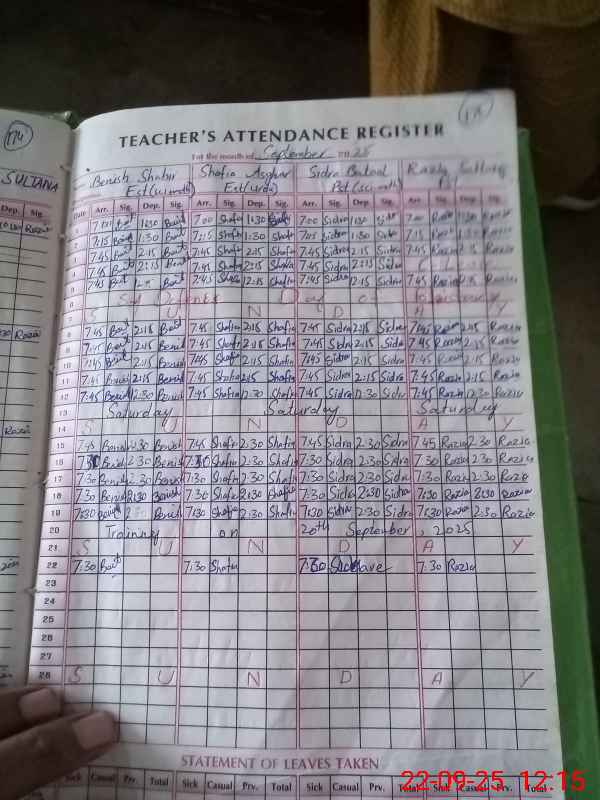 174
175
TEACHER'S ATTENDANCE REGISTER
For the month of September 2025
SULTANA
Benish Shabir Shafia Asghar Sidra Batool Razia Sultana
Est (sci math) Est (urdu) Pst (sci math)
Dep. Sig. Date Arr. Sig. Dep. Sig. Arr. Sig. Dep. Sig. Arr. Sig. Dep. Sig. Arr. Sig. Dep. Sig.
7:00 1:30 7:00 Shafia 1:30 7:00 Sidra 1:30 Sidra 7:00 Razia 1:30 Razia
7:15 1:30 7:15 Shafia 1:30 Shafia 7:15 Sidra 1:30 Sidra 7:15 Razia 1:30 Razia
7:45 2:15 7:45 Shafia 2:15 Shafia 7:45 Sidra 2:15 Sidra 7:45 Razia 2:15 Razia
7:45 2:15 7:45 Shafia 2:15 Shafia 7:45 Sidra 2:15 Sidra
7:45 7:45 Shafia 12:15 Shafia 7:45 Sidra 12:15 Sidra 7:45 Razia 12:15 Razia
Defence Day of
7 S U N D A Y
8 7:45 2:15 7:45 Shafia 2:15 Shafia 7:45 Sidra 2:15 Sidra 7:45 Razia 2:15 Razia
9 7:45 2:15 7:45 Shafia 2:15 Shafia 7:45 Sidra 2:15 Sidra 7:45 Razia 2:15 Razia
10 7:45 2:15 Benish 7:45 Shafia 2:15 Shafia 7:45 Sidra 2:15 Sidra 7:45 Razia 2:15 Razia
11 7:45 Benish 2:15 Benish 7:45 Shafia 2:15 Shafia 7:45 Sidra 2:15 Sidra 7:45 Razia 2:15 Razia
12 7:45 Benish 12:30 Benish 7:45 Shafia 12:30 Shafia 7:45 Sidra 12:30 Sidra 7:45 Razia 12:30 Razia
13 Saturday Saturday Saturday
14 S U N D A Y
15 7:45 Benish 2:30 Benish 7:45 Shafia 2:30 Shafia 7:45 Sidra 2:30 Sidra 7:45 Razia 2:30 Razia
16 7:30 Benish 2:30 Benish 7:30 Shafia 2:30 Shafia 7:30 Sidra 2:30 Sidra 7:30 Razia 2:30 Razia
17 7:30 Benish 2:30 Benish 7:30 Shafia 2:30 Shafia 7:30 Sidra 2:30 Sidra 7:30 Razia 2:30 Razia
18 7:30 Benish 2:30 Benish 7:30 Shafia 2:30 Shafia 7:30 Sidra 2:30 Sidra 7:30 Razia 2:30 Razia
19 7:30 Benish 2:30 Benish 7:30 Shafia 2:30 Shafia 7:30 Sidra 2:30 Sidra 7:30 Razia 2:30 Razia
20 Training on 20th September, 2025
21 S U N D A Y
22 7:30 7:30 Shafia 7:30 7:30 Razia
23
24
25
26
27
28 S U N D A Y
STATEMENT OF LEAVES TAKEN
Sick Casual Prv. Total Sick Casual Prv. Total Sick Casual Prv. Total Sick Casual Prv. Total
22-09-25 12:15